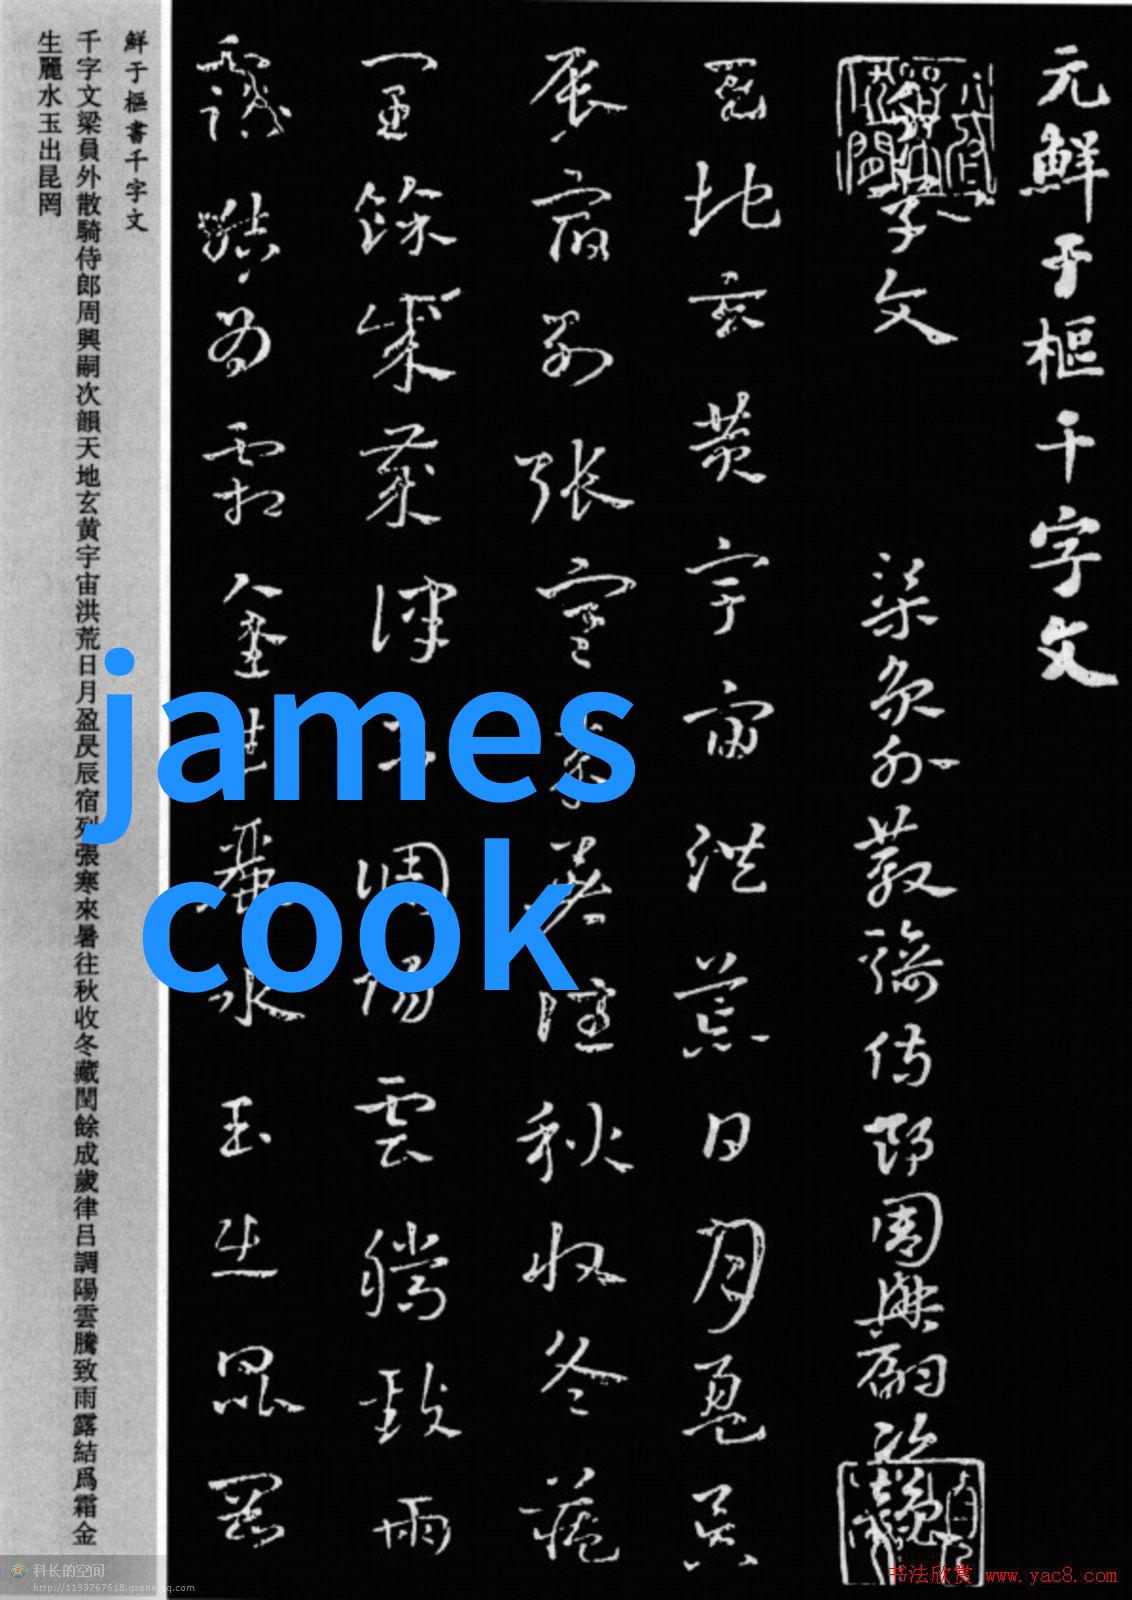 元鮮于樞千字文
千字文
梁員外散騎侍郎周興嗣次韻
天地玄黄宇宙洪荒日月盈昃
辰宿列張寒來暑往秋收冬藏
閏餘成歲律吕調陽雲騰致雨
露結爲霜金生麗水玉出昆岡
鮮于樞書千字文
千字文梁員外散騎侍郎周興嗣次韻天地玄黄宇宙洪荒日月盈昃辰宿列張寒來暑往秋收冬藏閏餘成歲律吕調陽雲騰致雨露結爲霜金
生麗水玉出昆罔
james
cook
科长的空间
http://1193767618.qzone.qq.com
书法欣赏 www.yac8.com